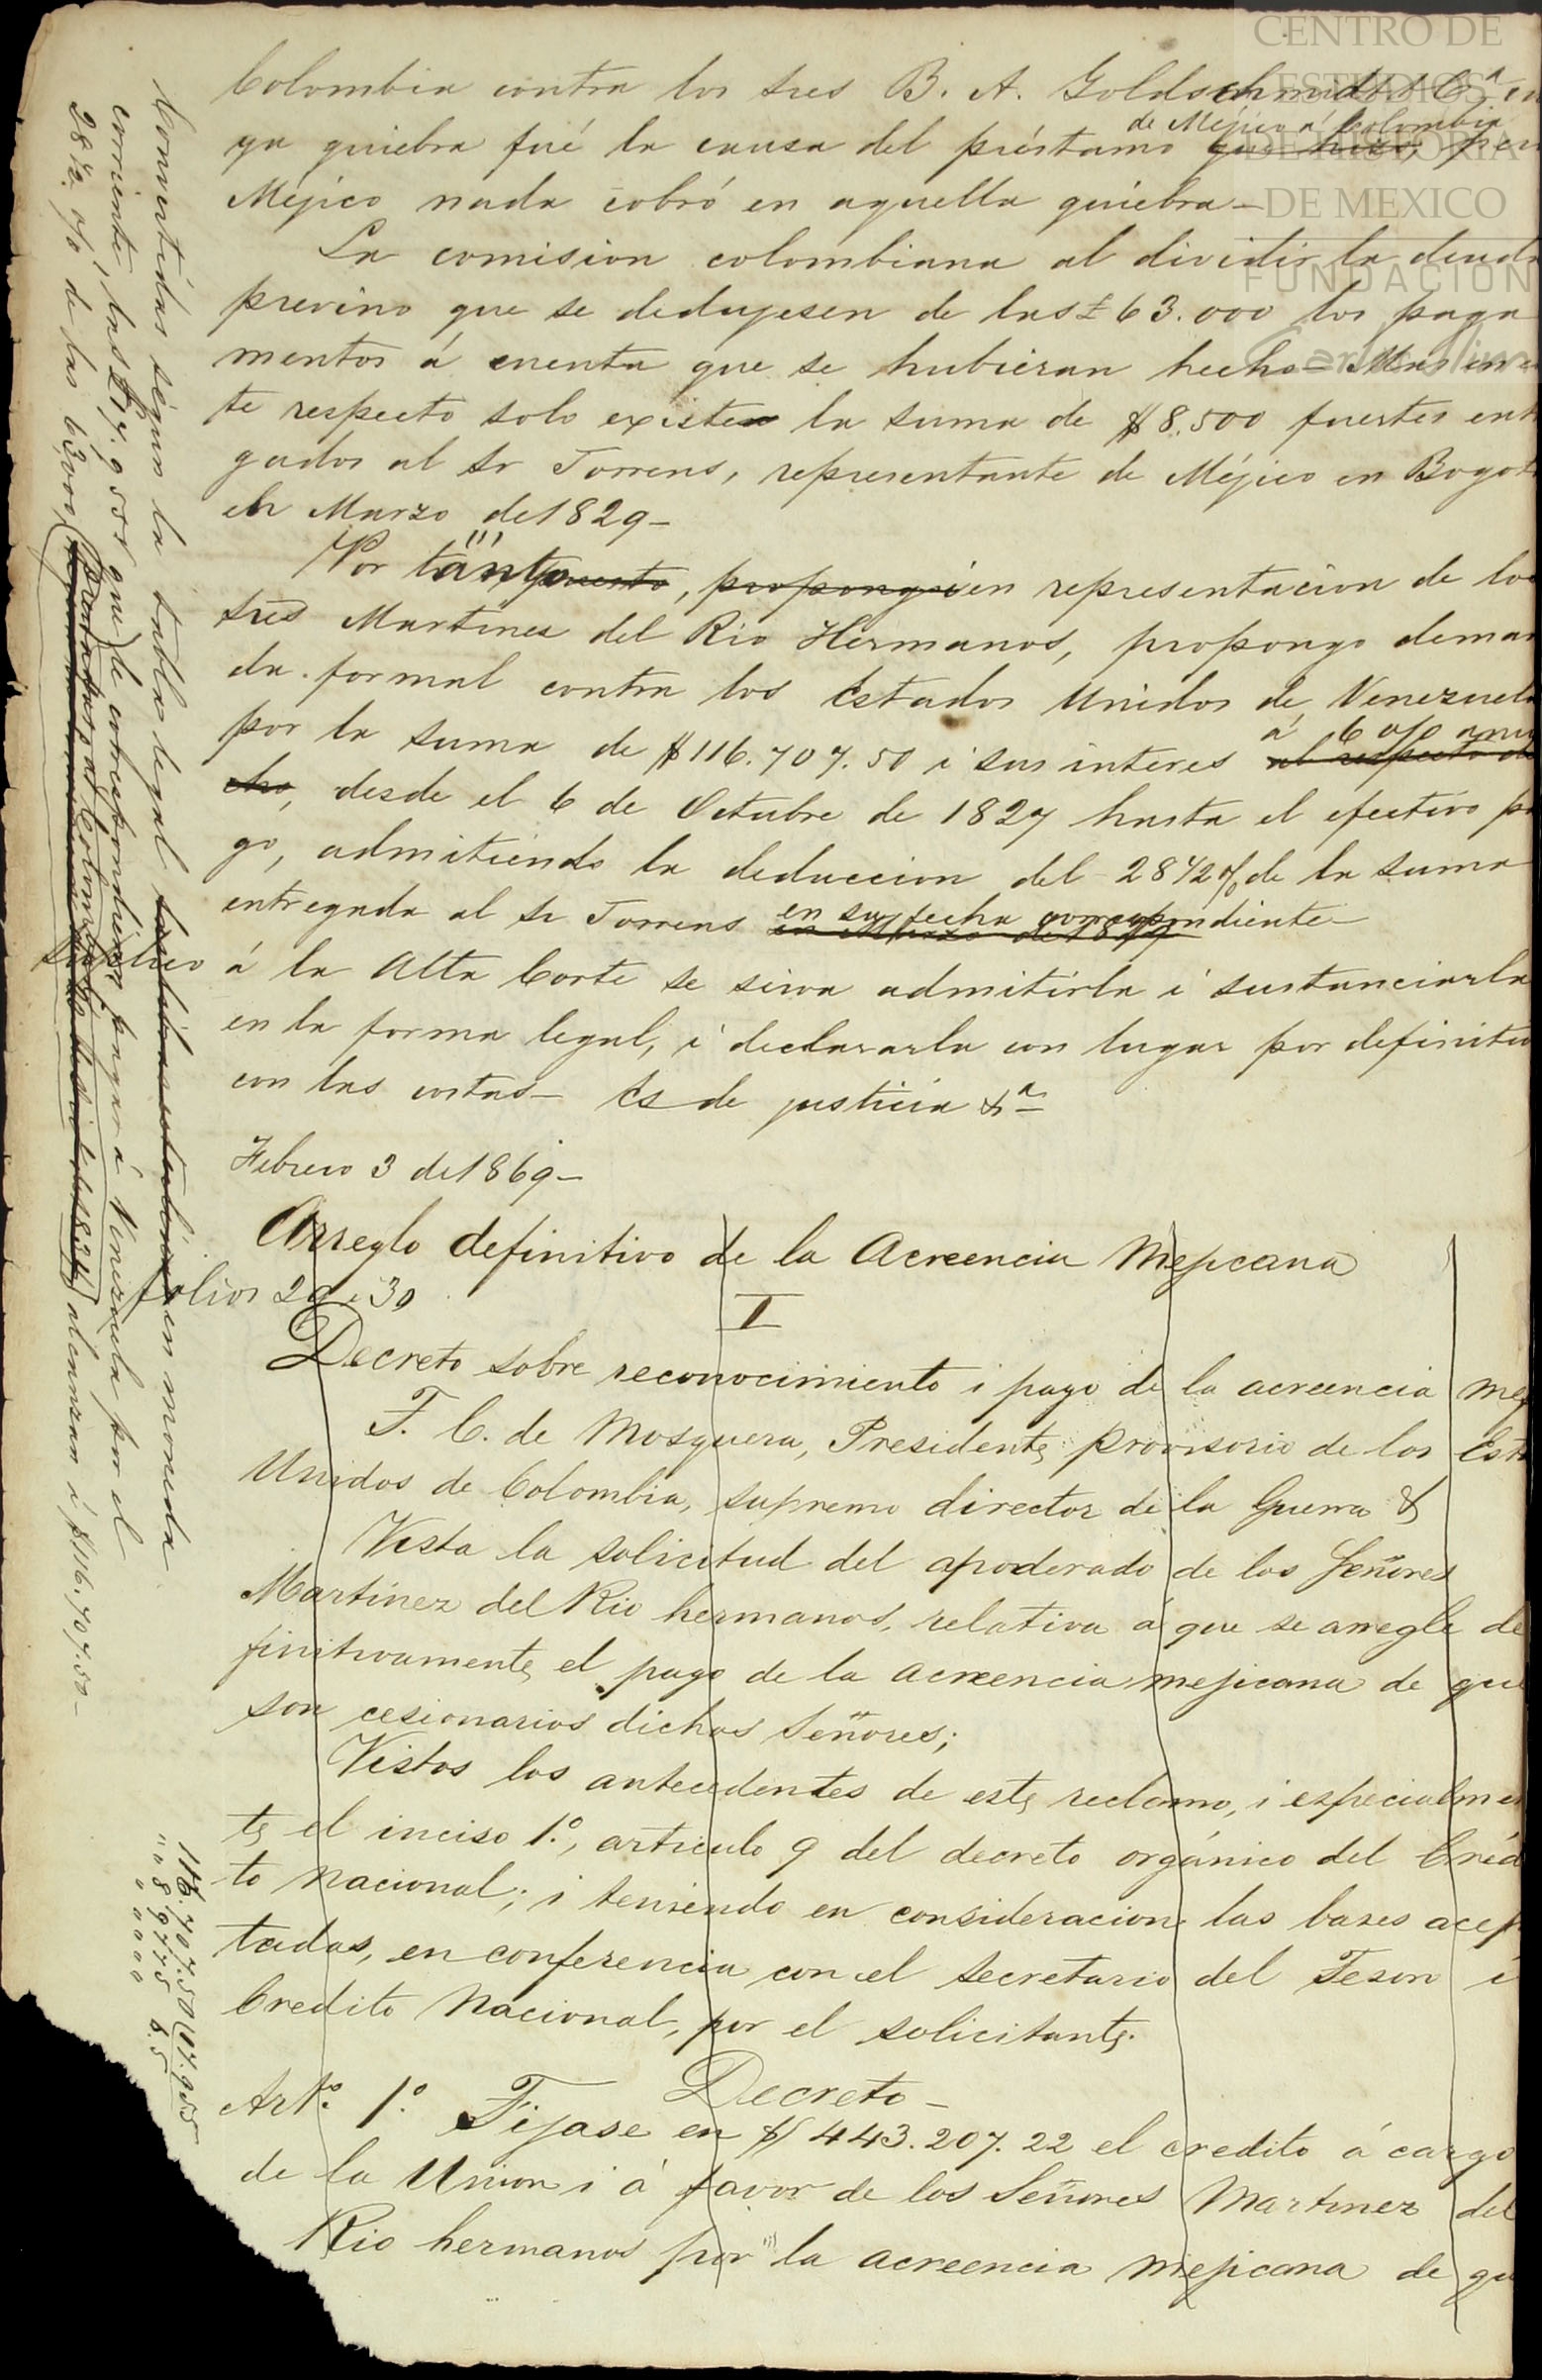 Colombia contra los sres B. A. Goldschmidt & Cª, cu
ya quiebra fué la causa del préstamo de Méjico á Colombia que hizo, pero
Méjico nada cobró en aquella quiebra—
La comision colombiana al dividir la deuda
previno que se dedujesen de las £ 63.000 los paga
mentos á cuenta que se hubieran hecho— Mas en es
te respecto solo existe la suma de $8.500 fuertes entre
gados al Sr Torrens, representante de Méjico en Bogotá
en Marzo de 1829—
Por tanto, propongo i en representacion de los
sres Martinez del Rio Hermanos, propongo deman
da formal contra los Estados Unidos de Venezuela
por la suma de $116.707.50 i sus interes á 6 0/0 anual al respecto di
cho, desde el 6 de Octubre de 1827 hasta el efectivo pa
go, admitiendo la deduccion del 28 1/2 % de la suma
entregada al Sr Torrens en su fecha correspondiente—
en Marzo de 1829
Suplico á la Alta Corte se sirva admitirla i sustanciarla
en la forma legal, i declararla con lugar por definitiva
con las costas— Es de justicia &ª—
Febrero 3 de 1869—
Arreglo definitivo de la Acreencia Mejicana
folios 29 i 30
I
Decreto sobre reconocimiento i pago de la acreencia mej
T. C. de Mosquera, Presidente provisorio de los Esta
Unidos de Colombia, supremo director de la Guerra &
Vista la solicitud del apoderado de los Señores
Martinez del Rio hermanos, relativa á que se arregle de
finitivamente el pago de la acreencia mejicana de que
son cesionarios dichos Señores;
Vistos los antecedentes de este reclamo, i especialmen
te el inciso 1.º, articulo 9 del decreto orgánico del Crédi
to Nacional; i teniendo en consideracion las bases acep
tadas, en conferencia con el Secretario del Tesoro i
Credito Nacional, por el solicitante.
Decreto—
Art.º 1.º Fijase en $443.207.22 el credito á cargo
de la Union i á favor de los Señores Martinez del
Rio hermanos por la acreencia mejicana de que
Convertidas segun la tabla legal en moneda
corriente, las £17.955 que le corresponderian pagar á Venezuela por el
28 1/2 0/0 de las 63000, alcanzan á $116.707.50—
116.707.50 (17.955
6.5
CENTRO DE
ESTUDIOS
DE HISTORIA
DE MEXICO
FUNDACION
Carlos Slim